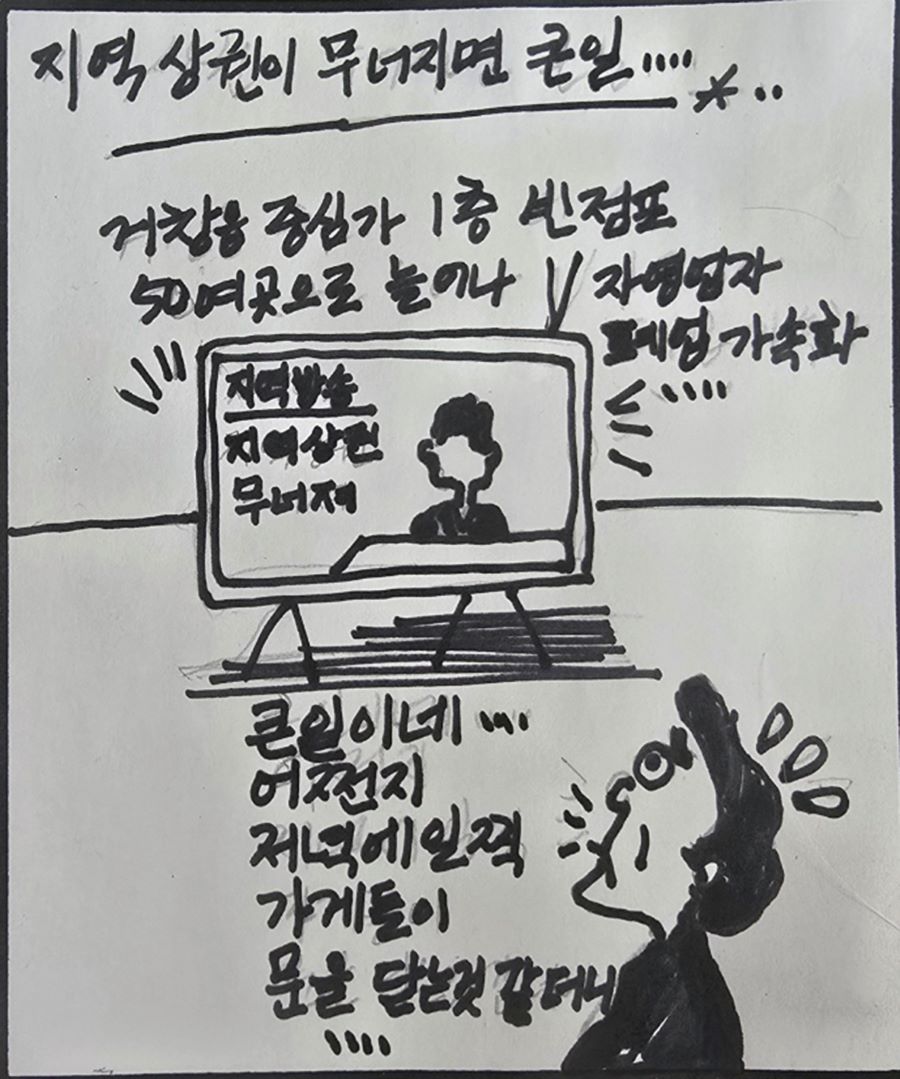 지역 상권이 무너지면 큰일....
거창읍 중심가 1층 빈점포
50여곳으로 늘어나
자영업자
폐업 가속화
....
지역방송
지역상권
무너져
큰일이네 ....
어쩐지
저녁에 일찍
가게들이
문을 닫는것 같더니
....